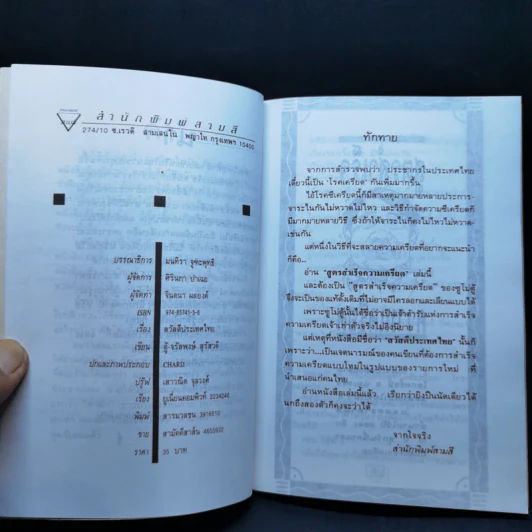 สำนักพิมพ์สามสี
274/10 ซ.เรวดี สามเสนใน พญาไท กรุงเทพฯ 10400
บรรณาธิการ มนทิรา จูฑะพุทธิ
ผู้จัดการ ศิรินภา ปาเฉย
ผู้จัดทำ จินตนา
ISBN 974-85741-5-8
เรื่อง สวัสดีประเทศไทย
เขียน ซู้ จรัสพงษ์ สุรัสวดี
ปกและภาพประกอบ CHARD
ปรู๊ฟ เสาวณิต จุลวงศ์
เรียง ยูเนี่ยนคอมพิวท์ 2234246
พิมพ์ สารมวลชน 3918510
ขาย สามัคคีสาส์น 4655602
ราคา 35 บาท
ทักทาย
จากการสำรวจพบว่า ประชากรในประเทศไทย
เดี๋ยวนี้เป็น 'โรคเครียด' กันเพิ่มมากขึ้น
ไอ้โรคซีเครียดนี้ก็มีสาเหตุมากมายหลายประการ-
จาระไนกันไม่หวาดไม่ไหว และวิธีกำจัดความซีเครียดก็
มีมากมายหลายวิธี ซึ่งถ้าให้จาระไนก็คงไม่ไหวไม่หวาด-
เช่นกัน
แต่หนึ่งในวิธีที่จะสลายความเครียดที่อยากจะแนะนำ
ก็คือ..
อ่าน "สูตรสำเร็จความเครียด" เล่มนี้
และต้องเป็น "สูตรสำเร็จความเครียด" ของซูโม่ตู้
จึงจะเป็นของแท้ดั้งเดิมที่ไม่อาจมีใครลอกและเลียนแบบได้
เพราะซูโม่ตู้นั้นได้ชื่อว่าเป็นเจ้าตำรับแห่งการสำเร็จ
ความเครียดเจ้าเก่าตัวจริงไม่อิงนิยาย
แต่เหตุที่หนังสือมีชื่อว่า "สวัสดีประเทศไทย" นั้นก็
เพราะว่า...เป็นเจตนารมณ์ของคนเขียนที่ต้องการสำเร็จ
ความเครียดแบบใหม่ในรูปแบบของรายการใหม่ ที่
นำเสนอแก่คนไทย
อ่านหนังสือเล่มนี้แล้ว เรียกว่ายิงปืนนัดเดียวได้
นกถึงสองตัวก็คงจะว่าได้
จากใจจริง
สำนักพิมพ์สามสี